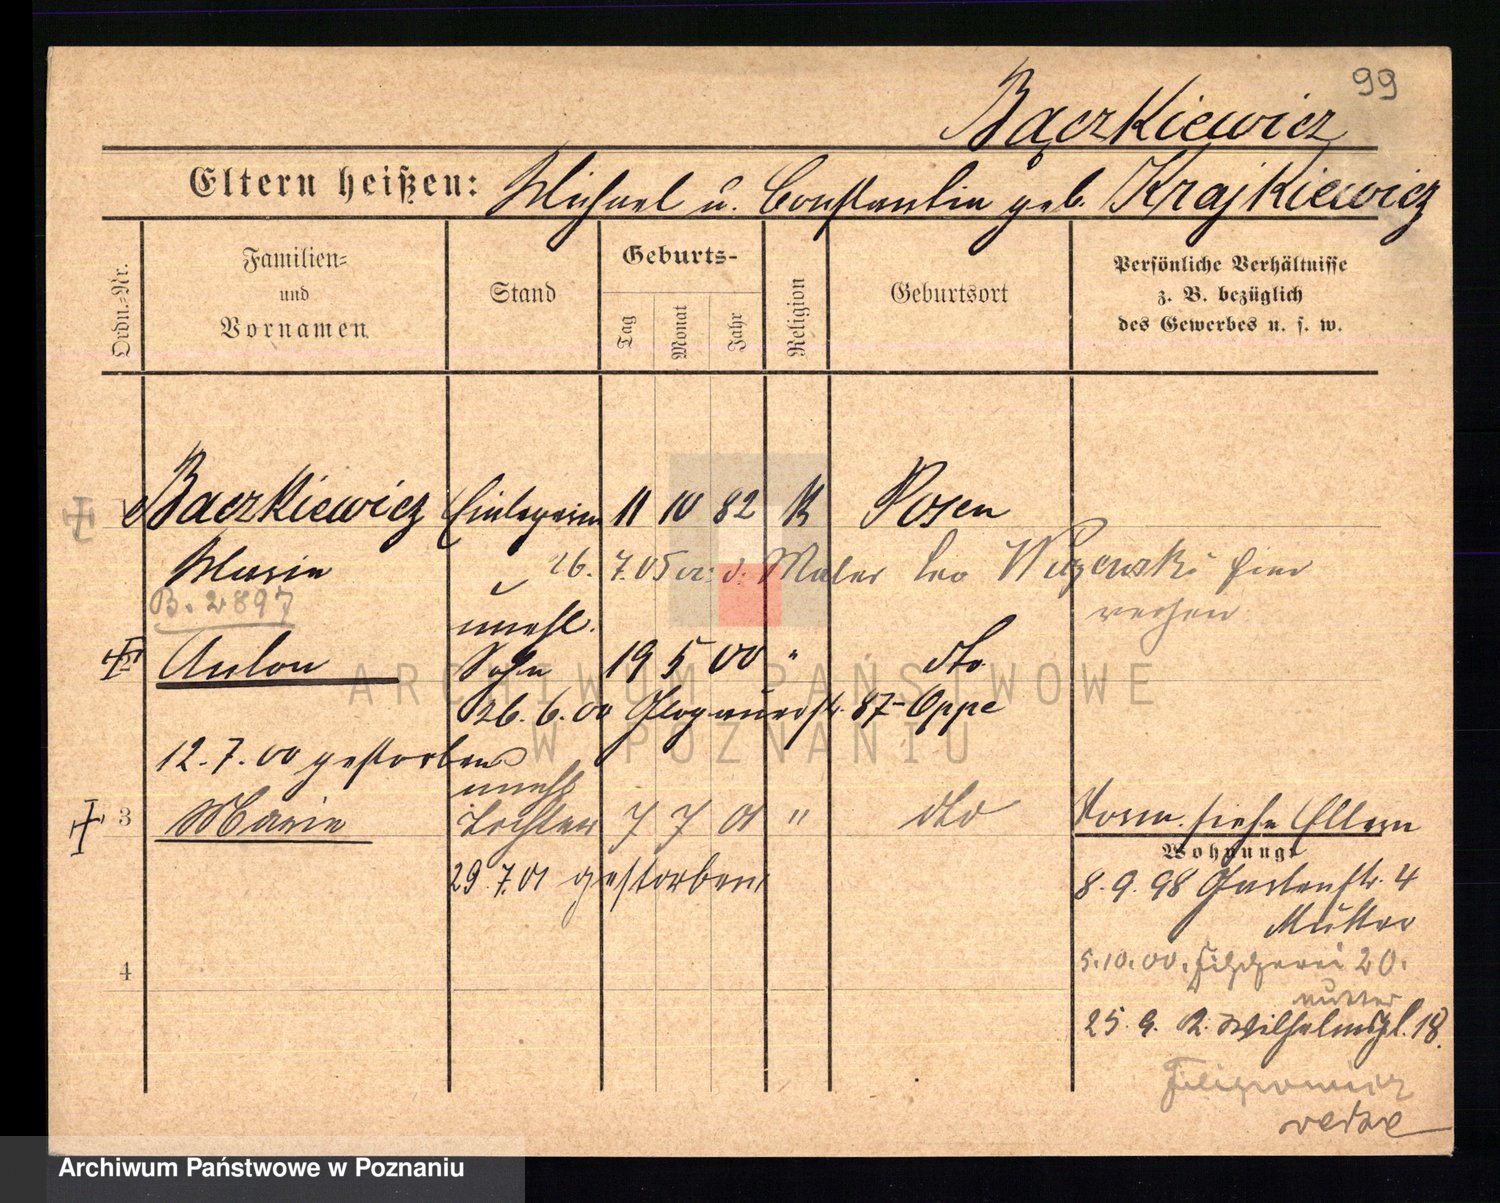 99
Bączkiewicz
Eltern heißen: Michael u. Constantia geb. Krajkiewicz
Ordn.-Nr.
Familien-
und
Vornamen
Stand
Geburts-
Tag
Monat
Jahr
Religion
Geburtsort
Persönliche Verhältnisse
z. B. bezüglich
des Gewerbes u. s. w.
1 Baczkiewicz 11 10 82 K Posen
Marie 26. 7. 05 Maler Leo
B. 2897
unehl.
2 Anton Sohn 19 5 00 " dto
26. 6. 00 Glogauerstr. 87 Oppe
12. 7. 00 gestorben
unehl
3 Marie Tochter 7 7 01 " dto Vorm. siehe Eltern
Wohnung:
29. 7. 01 gestorben
8. 9. 98 Gartenstr. 4
Mutter
4
5. 10. 00. Fischerei 20.
Mutter
25. 9. 2. Wilhelmspl. 18.
ARCHIWUM PAŃSTWOWE
W POZNANIU
Archiwum Państwowe w Poznaniu